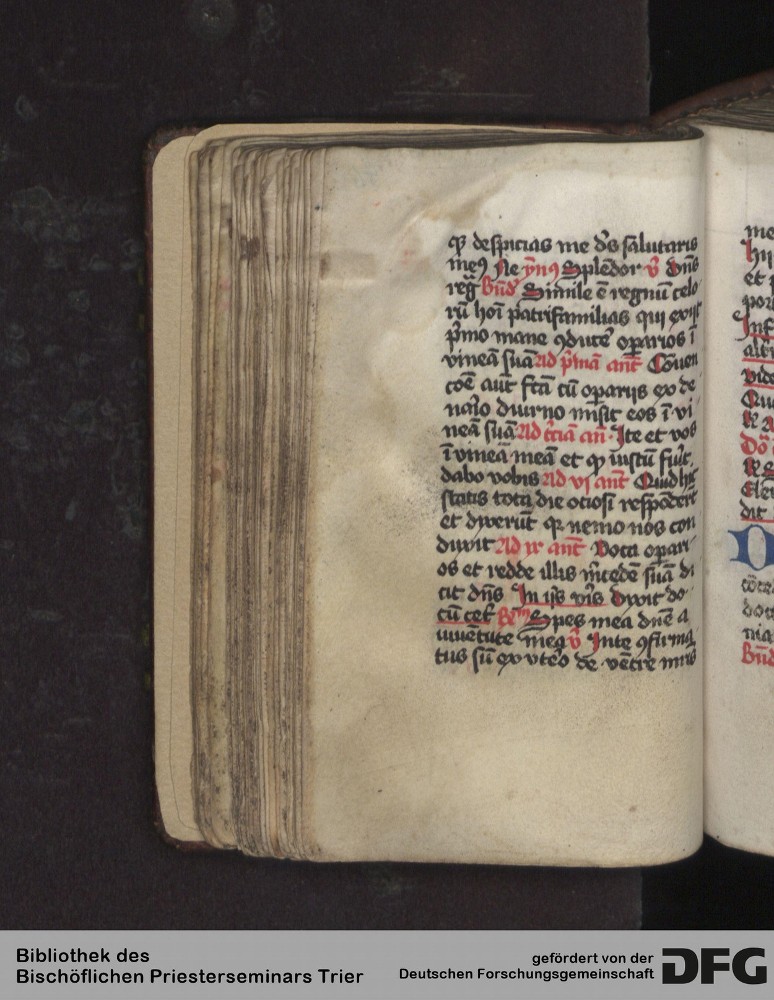 q̨ despicias me d̄s salutaris
meꝰ Ne ẏmꝰ Splēdor v̄ dn̄s
reg̃ Bn̄d̄ Simile ē regnū celo
rū hoī patrifamilias qui exijt
p̄mo mane ꝯduc̄e oꝑarios ī
vineā suā Ad p̄mā ant̄ Cōuen
cōe aūt fc̄ā cū oꝑarijs ex de
nario diurno misit eos ī vi
neā suā Ad t̄ciā añ Ite et vos
ī vineā meā et qͩ iustū fu͛it
dabo vobis Ad vi ant̄ Quid hic
statis tota die ociosi respōdeꝛ̄t
et dixerūt qꝛ nemo nos con
duxit Ad ix ant̄ Voca oꝑari
os et redde illis m̄cedē suā di
cit dn̄s In ijs vn̄s dixit do
cū cet̄ Rm̄ Spes mea dn̄e a
iuuētute mea v̄ In te ꝯfirma
tus sū ex vte͛o de vētre mr̄is
me
Hii
et
por
Inf
vide
Qu
dit
Bn̄d
Bibliothek des
Bischöflichen Priesterseminars Trier
gefördert von der
Deutschen Forschungsgemeinschaft
DFG